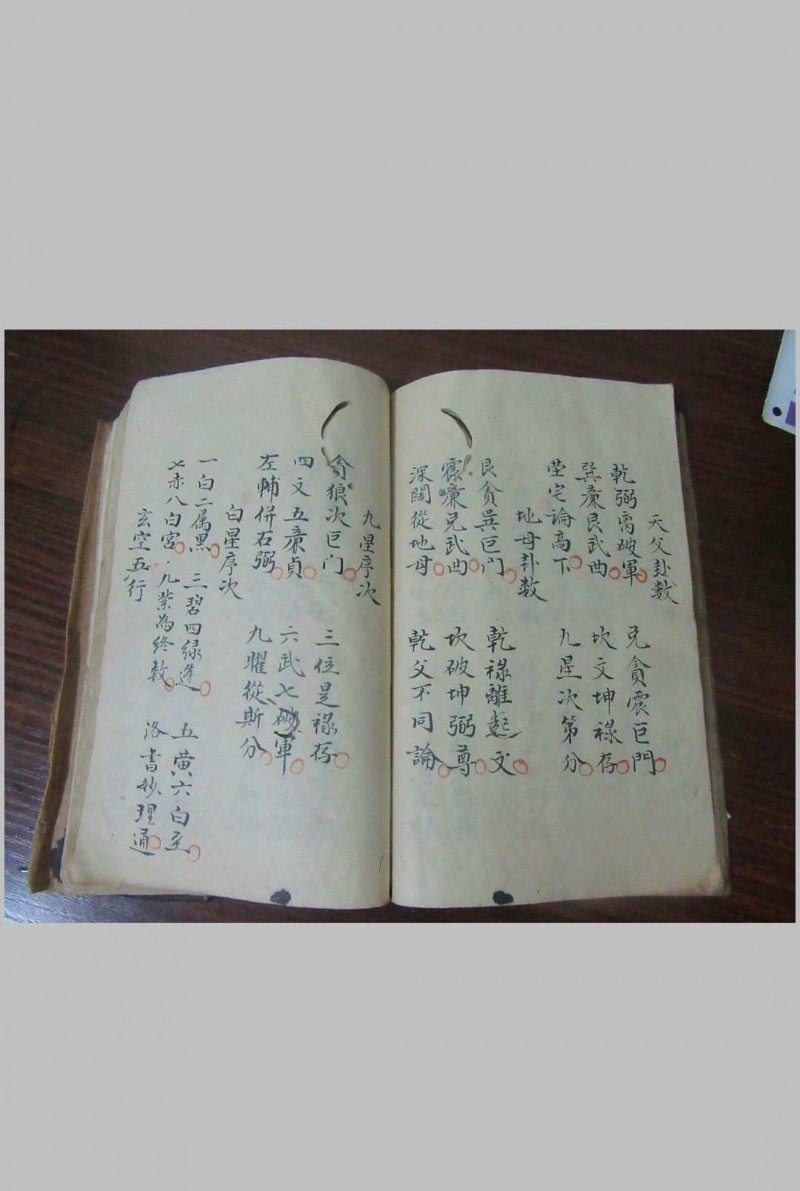 天父卦數
乾弼离破軍 兌貪震巨門
巽廉艮武曲 坎文坤祿存
茔宅論高下 九星次第分
地母卦数
艮貪巽巨门 乾祿離起文
震廉兌武曲 坎破坤弼尊
深闊從地母 乾父不同論
九星序次
貪狼次巨门 三位是祿存
四文五廉貞 六武七破軍
左輔併右弼 九曜從斯分
白星序次
一白二属黑 三碧四緑逢 五黄六白至
七赤八白宮 九紫為终数 洛書妙理通
玄空五行